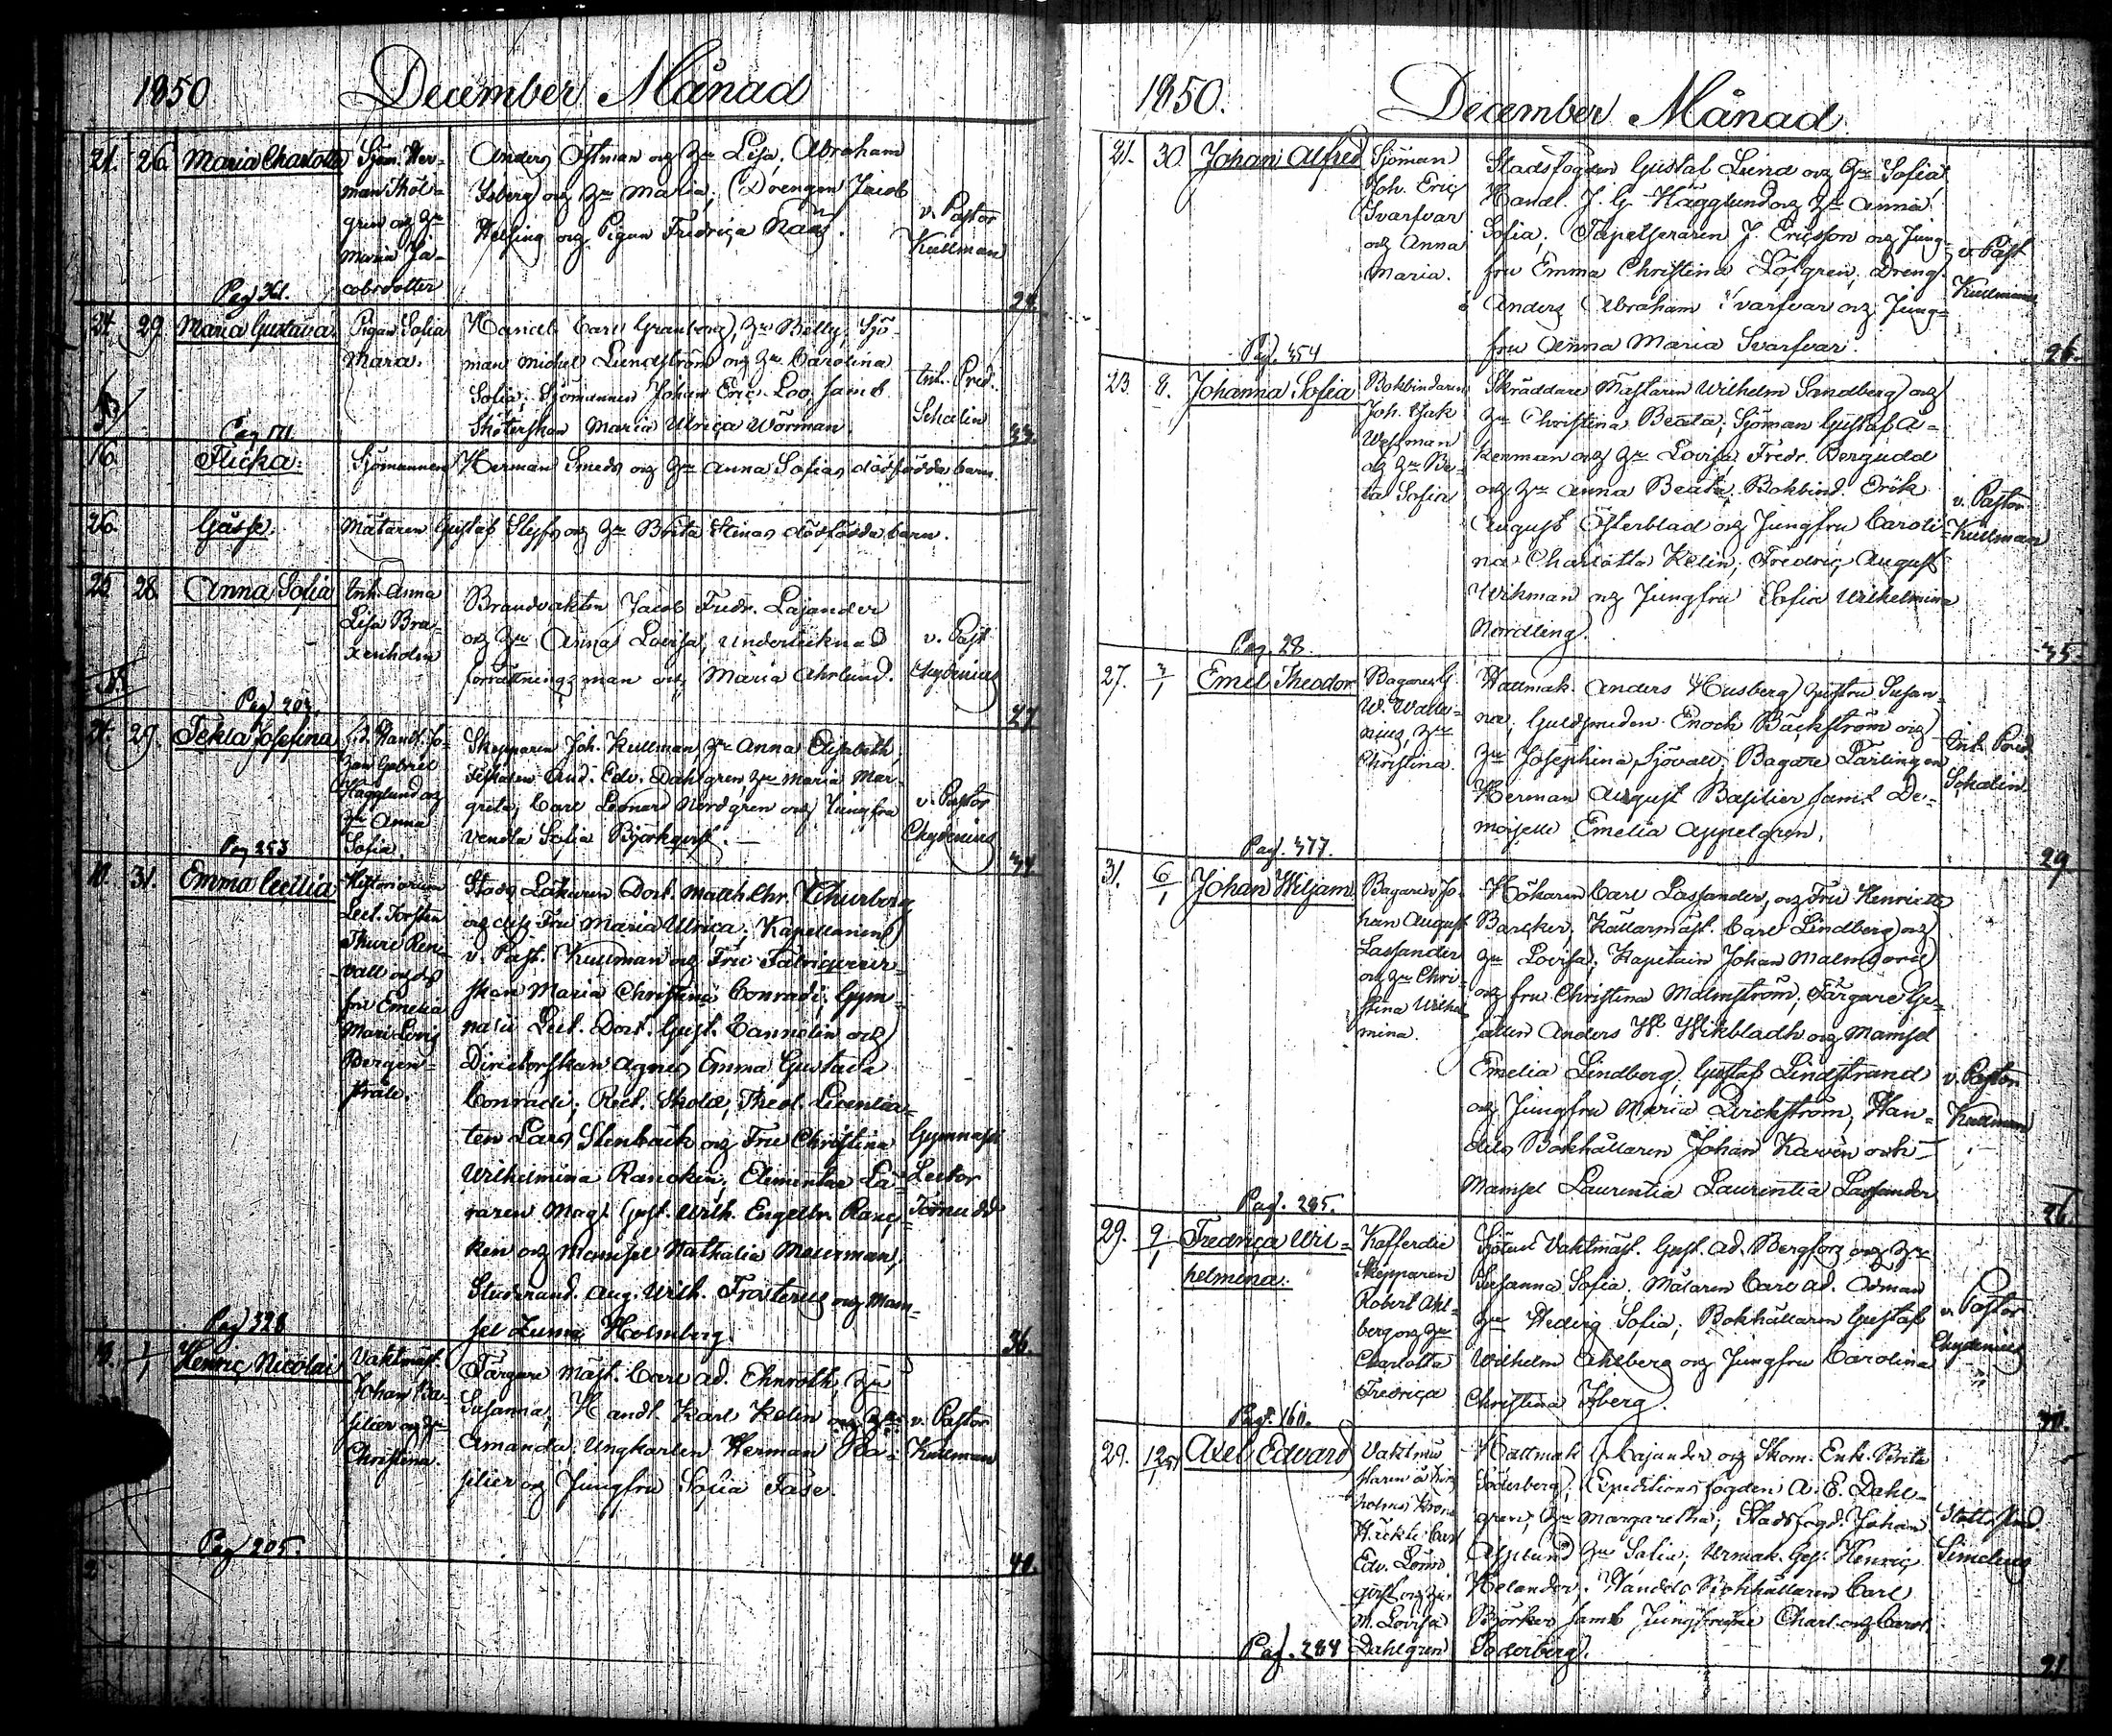 1850 December Månad
21. 26. Maria Charlotta
Sjöm. Her-
man Skol-
gren och h:u
Maria Ja-
cobsdotter
Anders Östman och h:u Lisa, Abraham
Isberg och h:u Maria, Drengen Jacob
Helsing och Pigan Fredrica Nääs.
v. Pastor
Kullman
Pag 361.
24.
24. 29. Maria Gustava.
Pigan Sofia
Maria.
Handl. Carl Granberg, h:u Betty, Sjö-
man Michel Lundström och h:u Carolina
Sofia; Sjömannen Johan Eric Loo, samt
Sköterskan Maria Ulrica Wörman.
Pred.
Schalin
Pag 171
33.
16. Flicka:
Sjömannen Herman Smeds och h:u Anna Sofias dödfödda barn.
26. Gåsse.
Mätaren Gustaf Slyfs och h:u Brita Stinas dödfödda barn.
25. 28. Anna Sofia
Inh. Anna
Lisa Bra-
xenholm
Brandvakten Jacob Fredr. Lajander
och h:u Anna Lovisa, undertecknad
förrättningsman och Maria Ahrlund.
v. Past
Chydenius
Pag 203.
27
29. Tekla Josefina
Handl. Jo-
han Gabriel
Hägglund och
h:u Anna
Sofia.
Skepparen Joh. Kullman, h:u Anna Elisabeth,
Fiskalen And. Edv. Dahlgren, h:u Maria Mar-
greta, Carl Leonard Nordgren och Jungfru
Vendla Sofia Björkqvist.
v. Pastor
Chydenius
Pag 253
34
10. 31. Emma Cecilia
Historiarum
Lect. Torsten
Thure Ren-
vall och dess
fru Emelia
Mari Lovis
Bergen-
stråle.
Stads Läkaren Doct. Matth. Chr. Churberg
och dess Fru Maria Ulrica; Kapellanen
v. Past. Kullman och Fru Fabriqueur-
skan Maria Christina Conradi; Gym-
nasii Lect. Doct. Gust. Cannelin och
Directorskan Agnes Emma Gustava
Conradi; Rect. Scholæ, Theol. Licentia-
ten Lars Stenbäck och Fru Christina
Wilhelmina Rancken; Elementar Lä-
raren Mag. Gust. Wilh. Engelbr. Ranc-
ken och Mamsel Nathalia Meurman;
Studerand. Aug. Wilh. Frosterus och Mam-
sel Zuma Holmberg.
Gymnasii
Lector
Törnudd
Pag 328
36.
Henric Nicolai
Vaktmäst.
Johan Ba-
silier och h:u
Christina.
Färgare Mäst. Carl Ad. Ehnroth, h:u
Susanna; Handl. Karl Kelin och h:u
Amanda; Ungkarlen Herman Ba-
silier och Jungfru Sofia Fase.
v. Pastor
Kullman
Pag 205.
40.
1850. December Månad
21. 30. Johan Alfred
Sjöman
Joh. Eric
Svarfvar
och Anna
Maria.
Stadsfogden Gustaf Lund och h:u Sofia,
Handl. J. G. Hägglund och h:u Anna
Sofia; Tapetseraren J. Ericsson och Jung-
fru Emma Christina Löfgren; Dreng.
Anders Abraham Svarfvar och Jung-
fru Anna Maria Svarfvar.
v. Past
Kullman
Pag. 354
26.
23. Johanna Sofia
Bokbindaren
Joh. Isak
Westman
och h:u Be-
ta Sofia
Skräddare Mästaren Wilhelm Sandberg och
h:u Christina Beata; Sjöman Gustaf A-
kerman och h:u Lovisa, Fredr. Bergudd
och h:u Anna Beata, Bokbind. Erik
August Österblad och Jungfru Caroli-
na Charlotta Kelin; Fredric August
Wikman och Jungfru Sofia Wilhelmina
Nordling.
v. Pastor
Kullman
Pag 28.
35.
27. 3/1 Emil Theodor
Bagaren G.
W. Walle-
nius, h:u
Christina.
Hattmak. Anders Husberg hustru Susan-
na; Guldsmeden Enoch Bäckström och
h:u Josephina Sjövall; Bagare Lärlingen
Herman August Basilier samt De-
moiselle Emelia Appelgren.
Pred.
Schalin
Pag. 377.
29
31. 6/1 Johan Wiljam
Bagaren Jo-
han August
Lassander
och h:u Chri-
stina Wilhel-
mina.
Hökaren Carl Lassander, och Fru Henriette
Barcker; Källarmäst. Carl Lindberg och
h:u Lovisa; Kapitain Johan Malmborg
och fru Christina Malmström; Färgare Ge-
sällen Anders W. Wikbladh och Mamsel
Emelia Lindberg, Gustaf Lindstrand
och Jungfru Maria Qvickström, Han-
dels Bokhållaren Johan Kavén och
Mamsel Laurentia Laurentia Lassander
v. Pastor
Kullman
Pag. 285.
26.
29. 9/1 Fredrica Wil-
helmina.
Kofferdie
Skepparen
Robert Ahl-
berg och h:u
Charlotta
Fredrica
Sjötull Vaktmäst. Gust. Ad. Bergfors och h:u
Susanna Sofia, Mätaren Carl Ad. Ödman
h:u Hedvig Sofia; Bokhållaren Gustaf
Wilhelm Ahlberg och Jungfru Carolina
Christina Isberg.
v. Pastor
Chydenius
Pag. 160.
30.
29. 12/1 Axel Edvard
Vaktmä-
staren å Kors-
holms Krono
Häckte Carl
Edv. Lönn-
qvist och h:u
M. Lovisa
Dahlgren
Hattmak. G. Cajander och Skom. Enk. Brita
Söderberg; Expeditions fogden A. E. Dahl-
gren, h:u Margaretha; Stadsfogd. Johan
Asplund h:u Sofia; Urmak. Ges. Henric
Helander; Handels Bokhållaren Carl
Björker samt Jungfrurne Charl. och Carol.
Söderberg.
Slotts Pred.
Simelius
Pag. 284
21